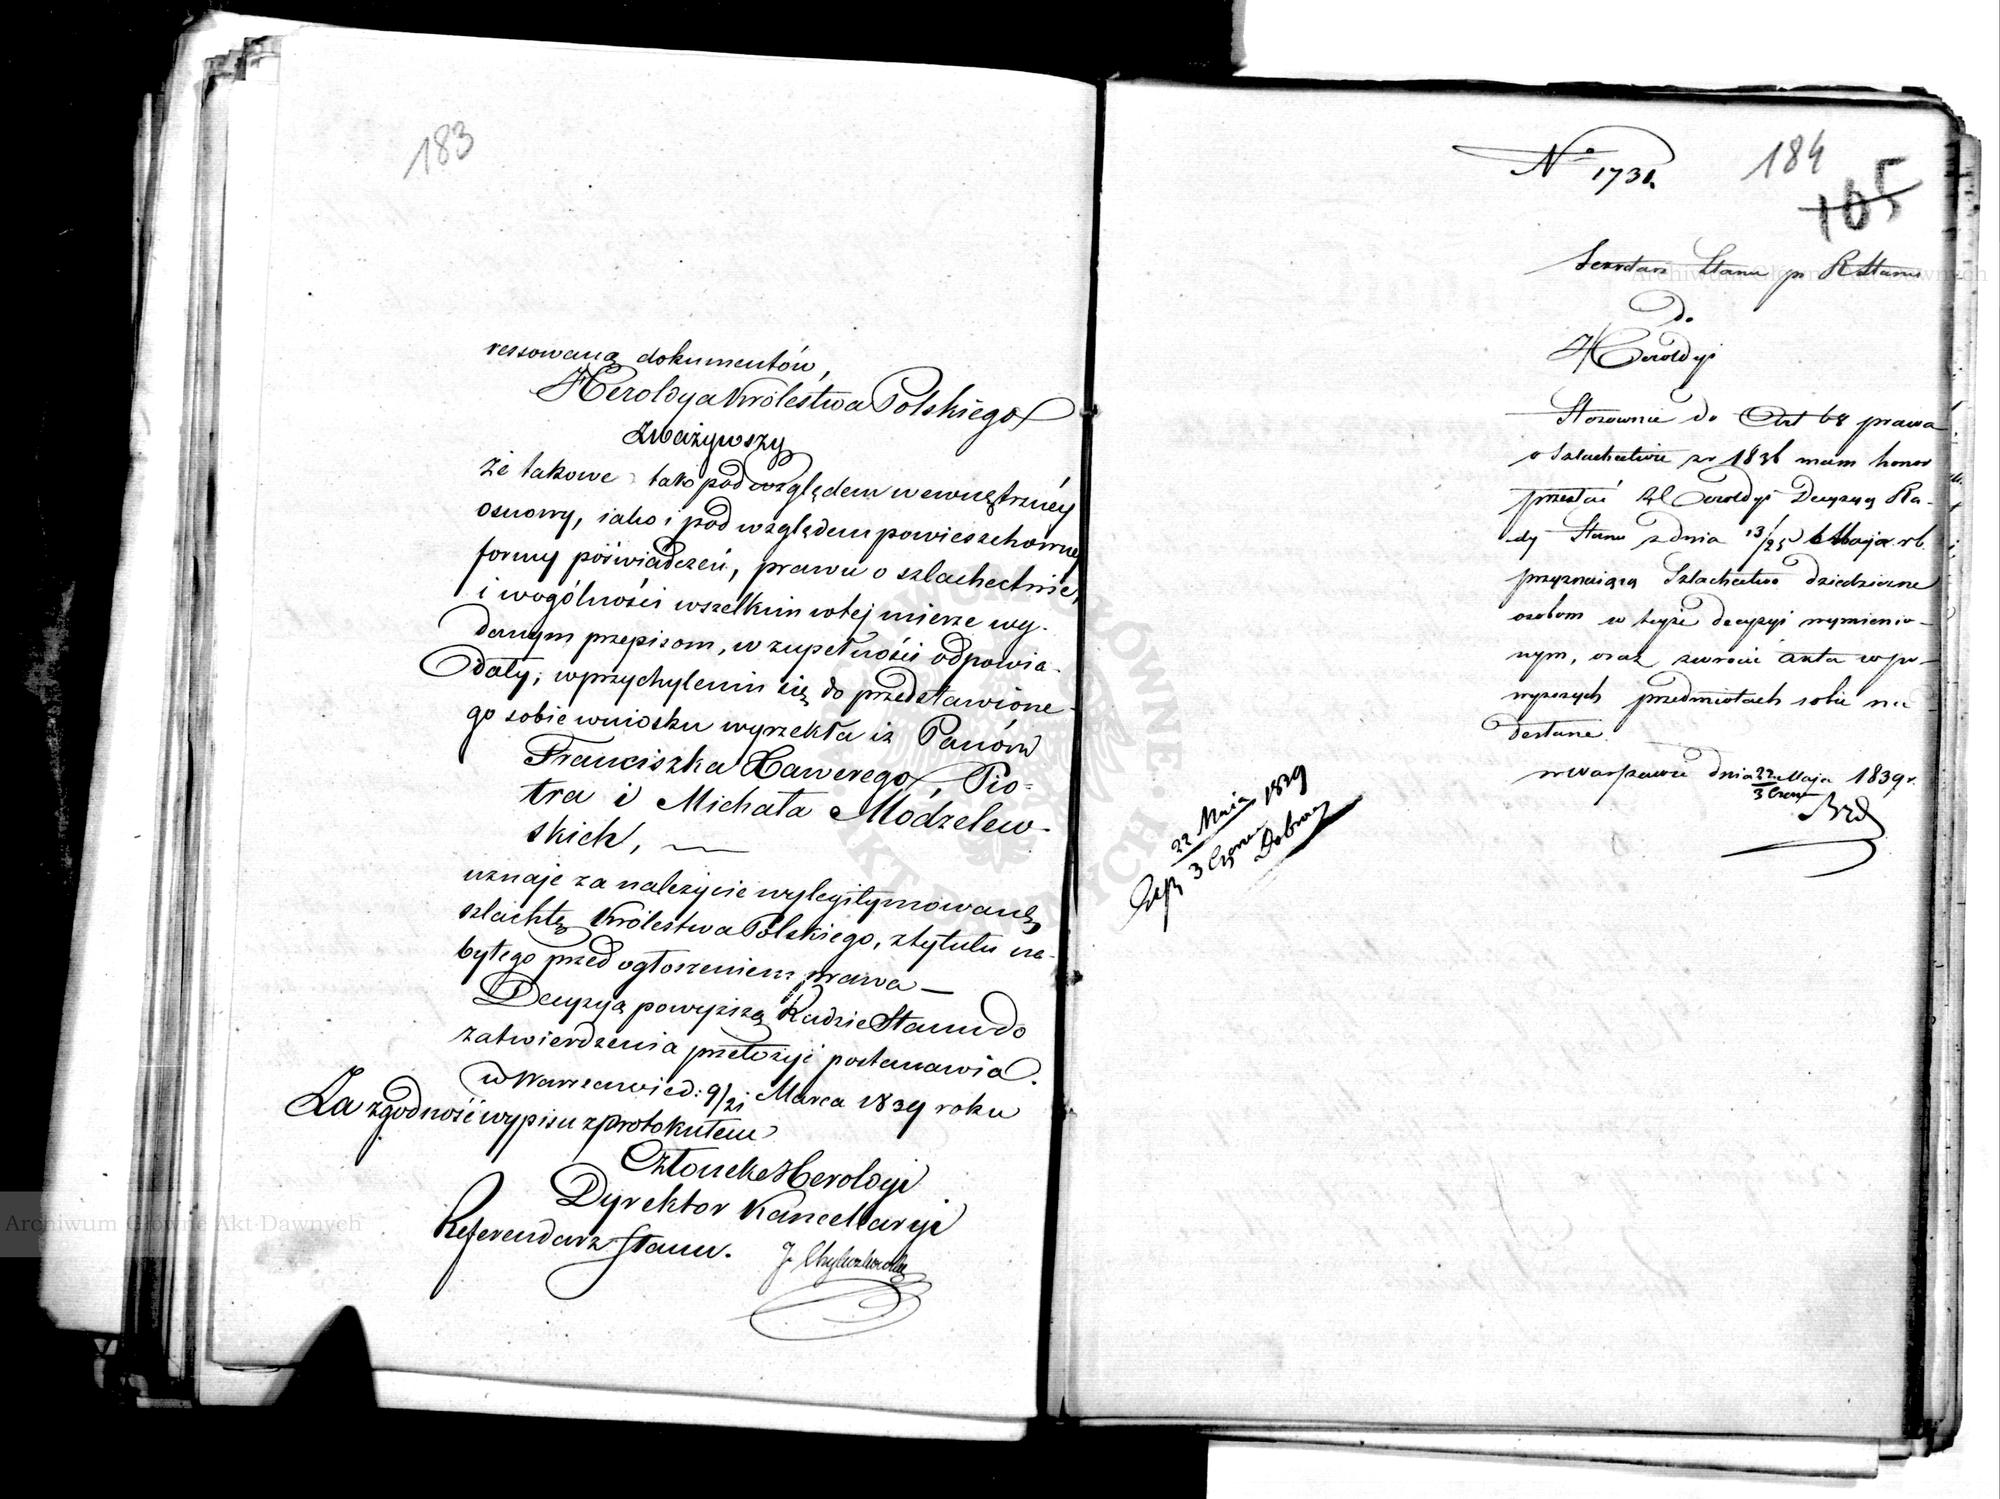 183
ressowaną dokumentów,
Heroldya Królestwa Polskiego
Zważywszy
że takowe tako pod względem wewnętrznéy
osnowy, iako i pod względem powierzchowney
formy poświadczeń, prawu o szlachectwie,
i wogólności wszelkim wtej mierze wy-
danym przepisom, w zupełności odpowia-
dały; w przychyleniu się do przedstawione-
go sobie wniosku wyrzekła iż Panów
Franciszka Xawerego, Pio-
tra i Michała Módzelew-
skich,
uznaje za należycie wylegitymowaną
szlachtę Królestwa Polskiego, z tytułu na-
bytego przed ogłoszeniem prawa —
Decyzyą powyższą Radzie Stanu do
zatwierdzenia przełożyć postanawia.
w Warszawie d: 9/21 Marca 1839 roku
Za zgodność wypisu z protokułem
Członek Heroldyi
Dyrektor Kancellaryi
Referendarz Stanu.
184
No 1731.
105
Sekretarz Stanu pr RStanu
do
Heroldyi
Stosownie do Art 68 prawa
o Szlachectwie zr 1836 mam honor
przesłać Heroldyi Decyzyą Ra-
dy Stanu z dnia 13/25 Maja rb.
przyznaiącą Szlachectwo dziedziczne
osobom w teyże decyzyi wymienio-
nym, oraz zwrócić akta w po-
wyższych przedmiotach sobie na-
desłane.
w Warszawie dnia 22 Maja 1839 r.
3 Czerw
22 Maja 1839
3 Czerw
Archiwum Główne Akt Dawnych
Archiwum Główne Akt Dawnych